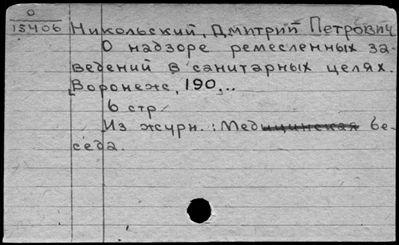 О
15406
Никольский, Дмитрий Петрович
О надзоре ремесленных за-
ведений в санитарных целях.
Воронеж, 190,..
6 стр.
Из журн.: Медицинская бе-
седа.